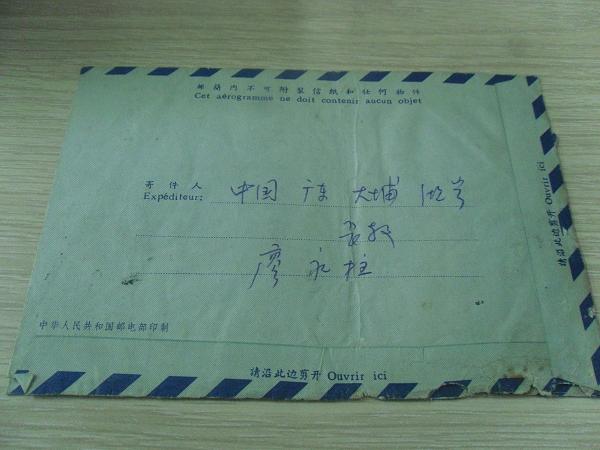 邮简内不可附装信纸和任何物件
Cet aérogramme ne doit contenir aucun objet
寄件人
Expéditeur:
中国 广东 大埔
廖永柱
中华人民共和国邮电部印制
请沿此边剪开 Ouvrir ici
请沿此边剪开 Ouvrir ici